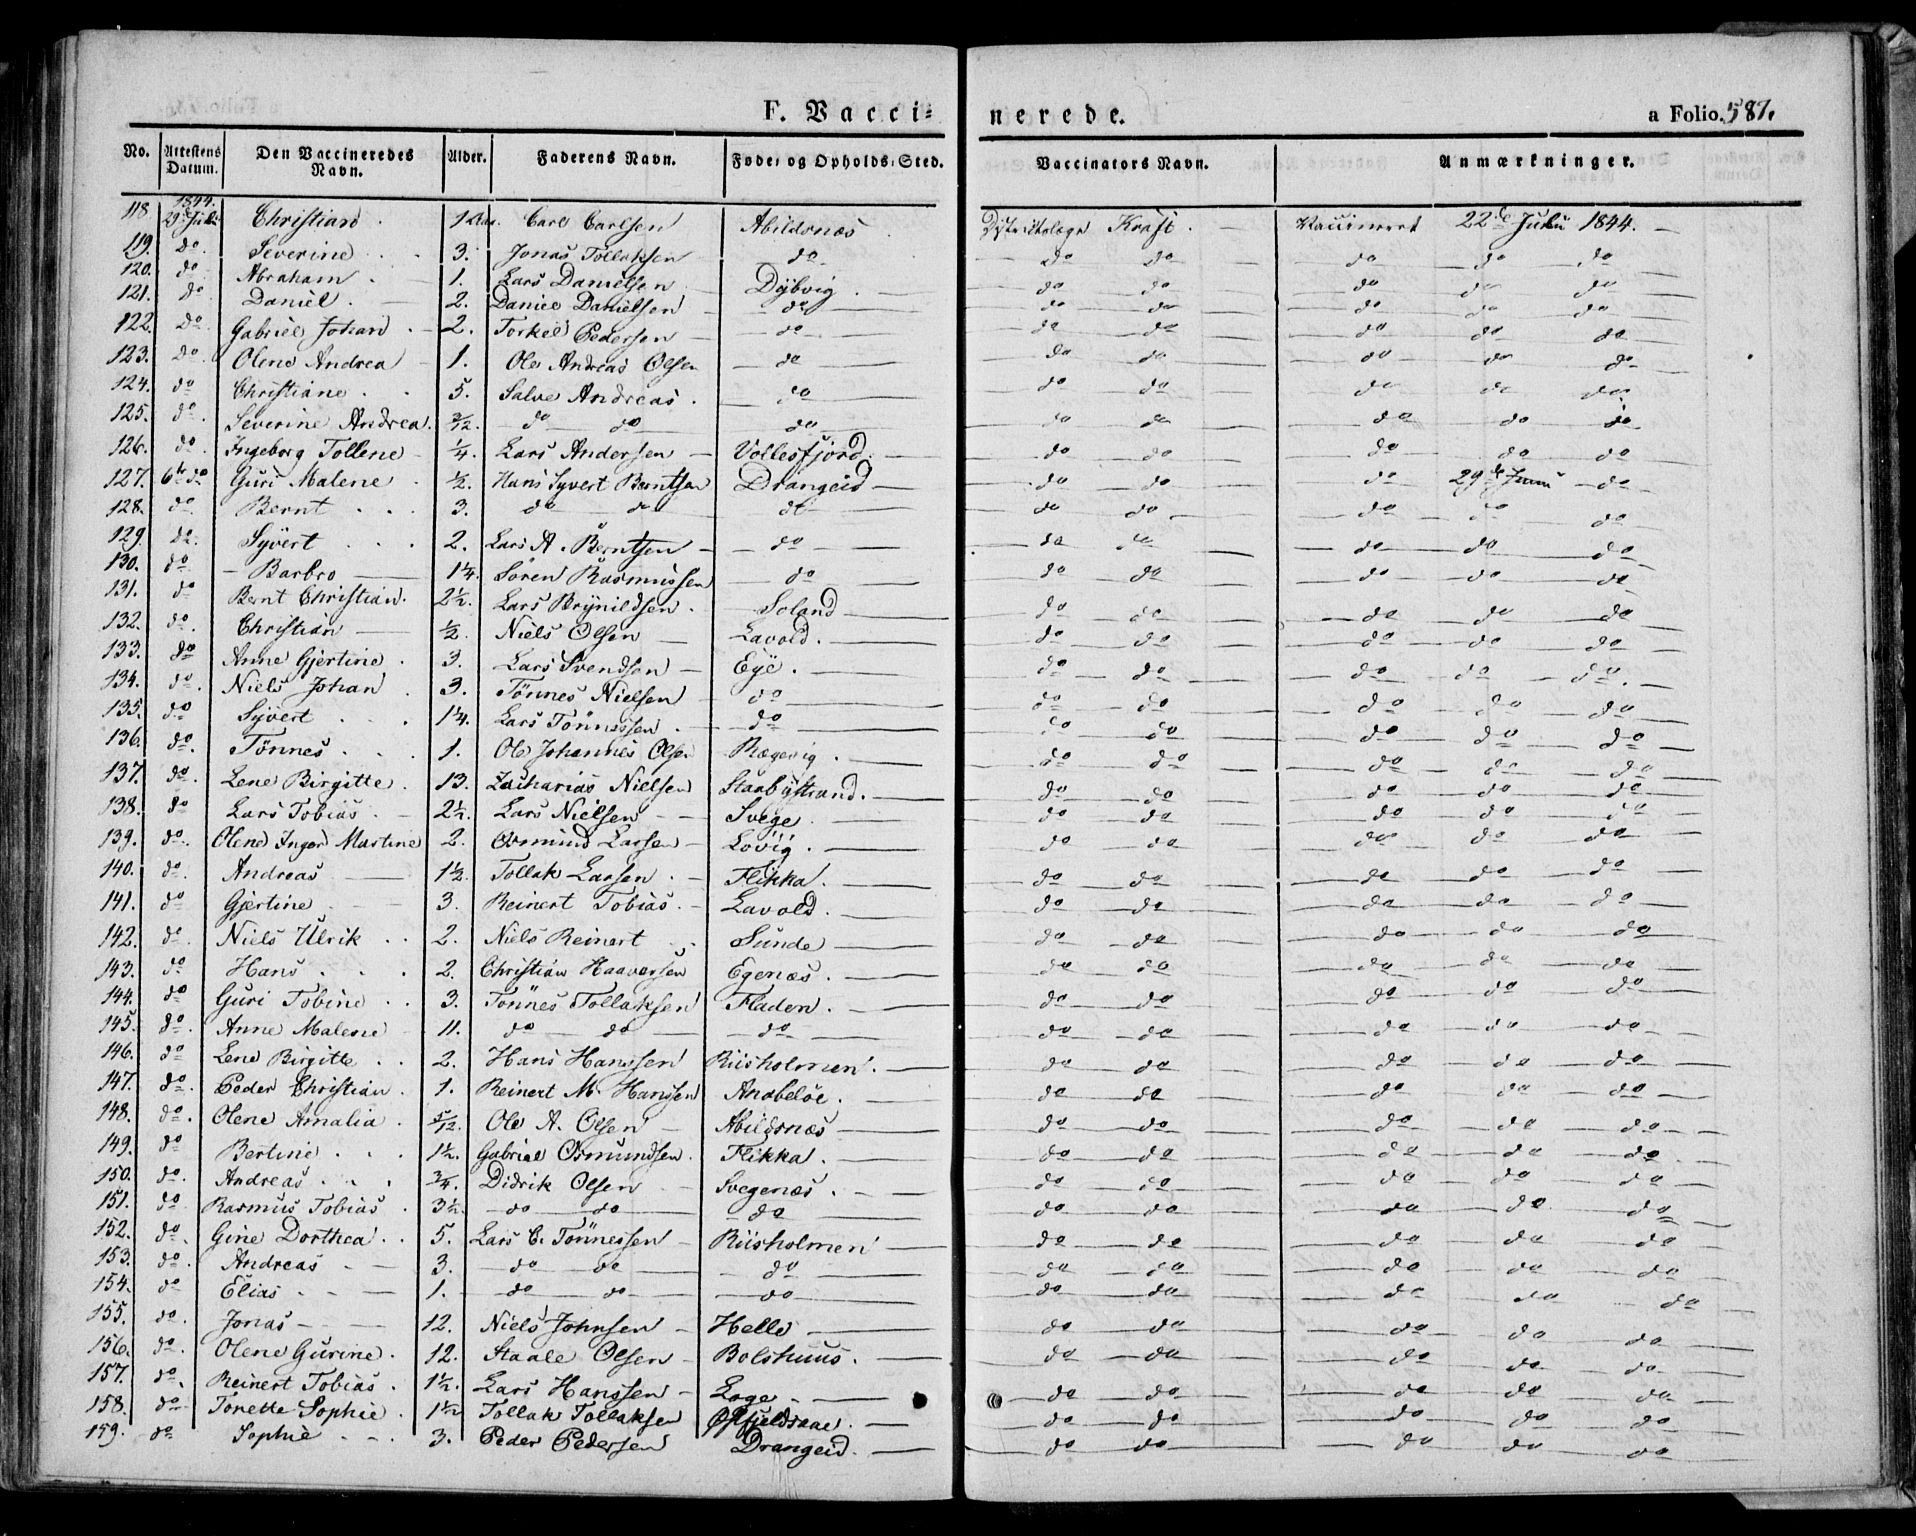 F. Vacci=nerede.
a Folio. 587.
No. Attestens Datum. Den Vaccineredes Navn. Alder. Faderens Navn. Føde- og Opholds-Sted. Vaccinators Navn. Anmærkninger.
1844.
118. 29de Juli Christian 1 Aar Carl Carlsen Abildsnæs Districtslæge Kraft. Vaccineret 22de Juli 1844.
119. do Severine 3. Jonas Tollaksen do do do do do do
120. do Abraham 1. Lars Danielsen Dybvig do do do do do
121. do Daniel 2. Daniel Danielsen do do do do do do
122. do Gabriel Johan 2. Torkel Pedersen do do do do do do
123. do Olene Andrea 1. Ole Andreas Olsen do do do do do do
124. do Christiane 5. Salve Andreas do do do do do do
125. do Severine Andrea 3/12 do do do do do do do do
126. do Ingeborg Tollene 1/4 Lars Andersen Vollesfjord do do do do do
127. 6te do Guri Malene 1/2 Hans Syvert Berntsen Drangeid do do do 29de Juni do
128. do Bernt 3. do do do do do do do do
129. do Syvert 2. Lars A. Berntsen do do do do do do
130. do Barbro 1 1/4 Sören Rasmussen do do do do do do
131. do Bernt Christian 2 1/2 Lars Brynildsen Soland do do do do do
132. do Christian 1/2 Niels Olsen Lavold do do do do do
133. do Anne Gjertine 3. Lars Svendsen Eye do do do do do
134. do Niels Johan 3. Tönnes Nielsen do do do do do do
135. do Syvert 1 1/4 Lars Tönnessen do do do do do do
136. do Tönnes 1. Ole Johannes Olsen Rægevig do do do do do
137. do Lene Birgitte 13. Zacharias Nielsen Staabystrand do do do do do
138. do Lars Tobias 2 1/2 Lars Nielsen Svege do do do do do
139. do Olene Inger Martine 2. Osmund Larsen Lövig do do do do do
140. do Andreas 1 1/2 Tollak Larsen Flikka do do do do do
141. do Gjertine 3. Reinert Tobias Lavold do do do do do
142. do Niels Ulrik 2. Niels Reinert Sunde do do do do do
143. do Hans 2. Christian Haaversen Egenæs do do do do do
144. do Guri Tobine 3. Tönnes Tollaksen Fladen do do do do do
145. do Anne Malene 11. do do do do do do do do
146. do Lene Birgitte 2. Hans Hanssen Riisholmen do do do do do
147. do Peder Christian 1. Reinert M. Hanssen Anabelöe do do do do do
148. do Olene Amalia 5/12 Ole A. Olsen Abildsnæs do do do do do
149. do Bertine 1 1/2 Gabriel Osmundsen Flikka do do do do do
150. do Andreas 3/4 Didrik Olsen Svegenæs do do do do do
151. do Rasmus Tobias 3 1/2 do do do do do do do do
152. do Gine Dorthea 5. Lars C. Tönnessen Riisholmen do do do do do
153. do Andreas 3. do do do do do do do do
154. do Elias 1. do do do do do do do do
155. do Jonas 12. Niels Johnsen Helle do do do do do
156. do Olene Gurine 12. Staale Olsen Bolshuus do do do do do
157. do Reinert Tobias 1 1/2 Lars Hanssen Loge do do do do do
158. do Tonette Sophie 1 1/2 Tollak Tollaksen do do do do do
159. do Sophie 3. Peder Pedersen Drangeid do do do do do